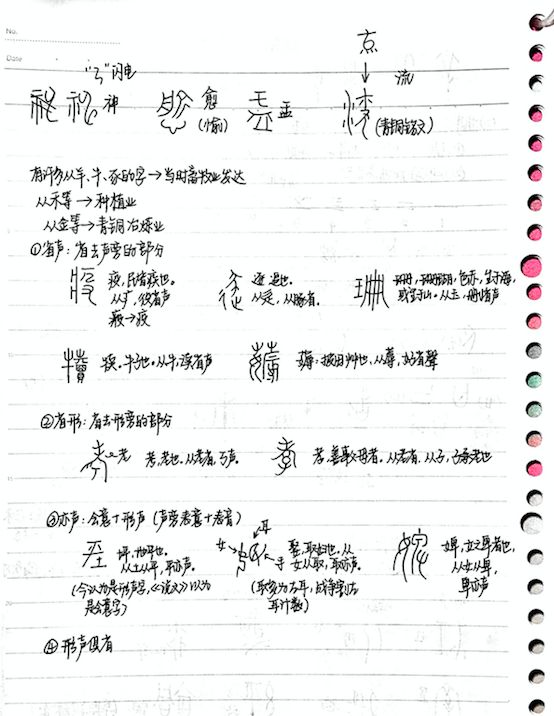 No.
Date
"ʒ"闪电
神
愈
(愉)
孟
流
(青铜铭文)
有许多从羊、牛、豕的字→当时畜牧业发达
从禾等→种植业
从金等→青铜冶炼业
①省声：省去声旁的部分
疫，民皆疾也。
从疒，役省声
从辵，从豚省。
珊瑚，色赤，生于海，
或生于山。从玉，删省声
犊。牛子也。从牛，渎省声
薅：拔田艸也，从蓐，好省聲
②省形：省去形旁的部分
老
考，老也。从老省，丂声。
孝，善事父母者。从老省，从子，子承老也
③亦声：会意+形声（声旁表意+表音）
坪，地平也。
从土从平，平亦声。
(今认为是形声字，《说文》以为
是会意字)
女
耳
娶，取妇也，从
女从取，取亦声。
(取多为右耳，战争割左
耳计数)
婢，女之卑者也，
从女从卑，
卑亦声
④形声俱省